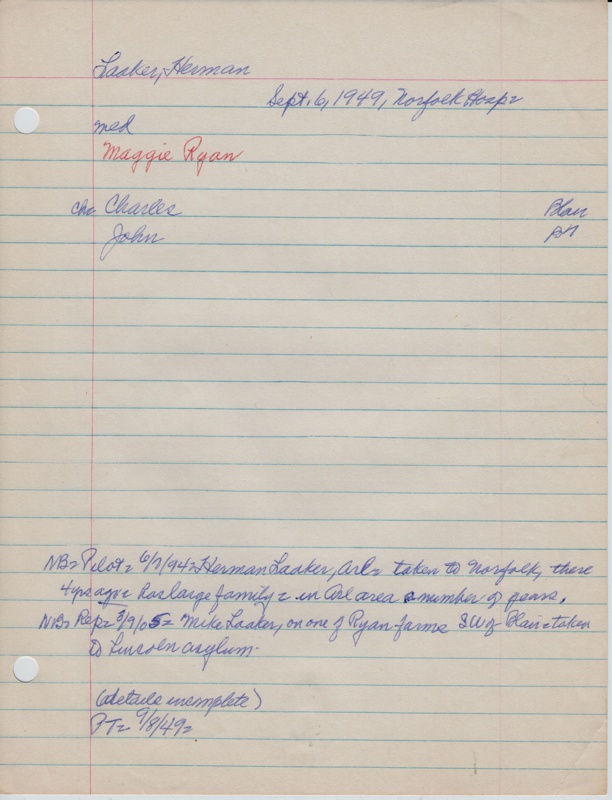 Laaker, Herman
Sept. 6, 1949, Norfolk Hosp=
med
Maggie Ryan
Chr. Charles Blair
John
NB= Pilot= 6/7/94= Herman Laaker, Arl= taken to Norfolk, there
4 yrs ago= has large family= in Arl area a number of years.
NB= Rep= 3/9/05= Mike Laaker, on one of Ryan farms SW of Blair= taken
to Lincoln asylum.
(details incomplete)
PT= 9/8/49=